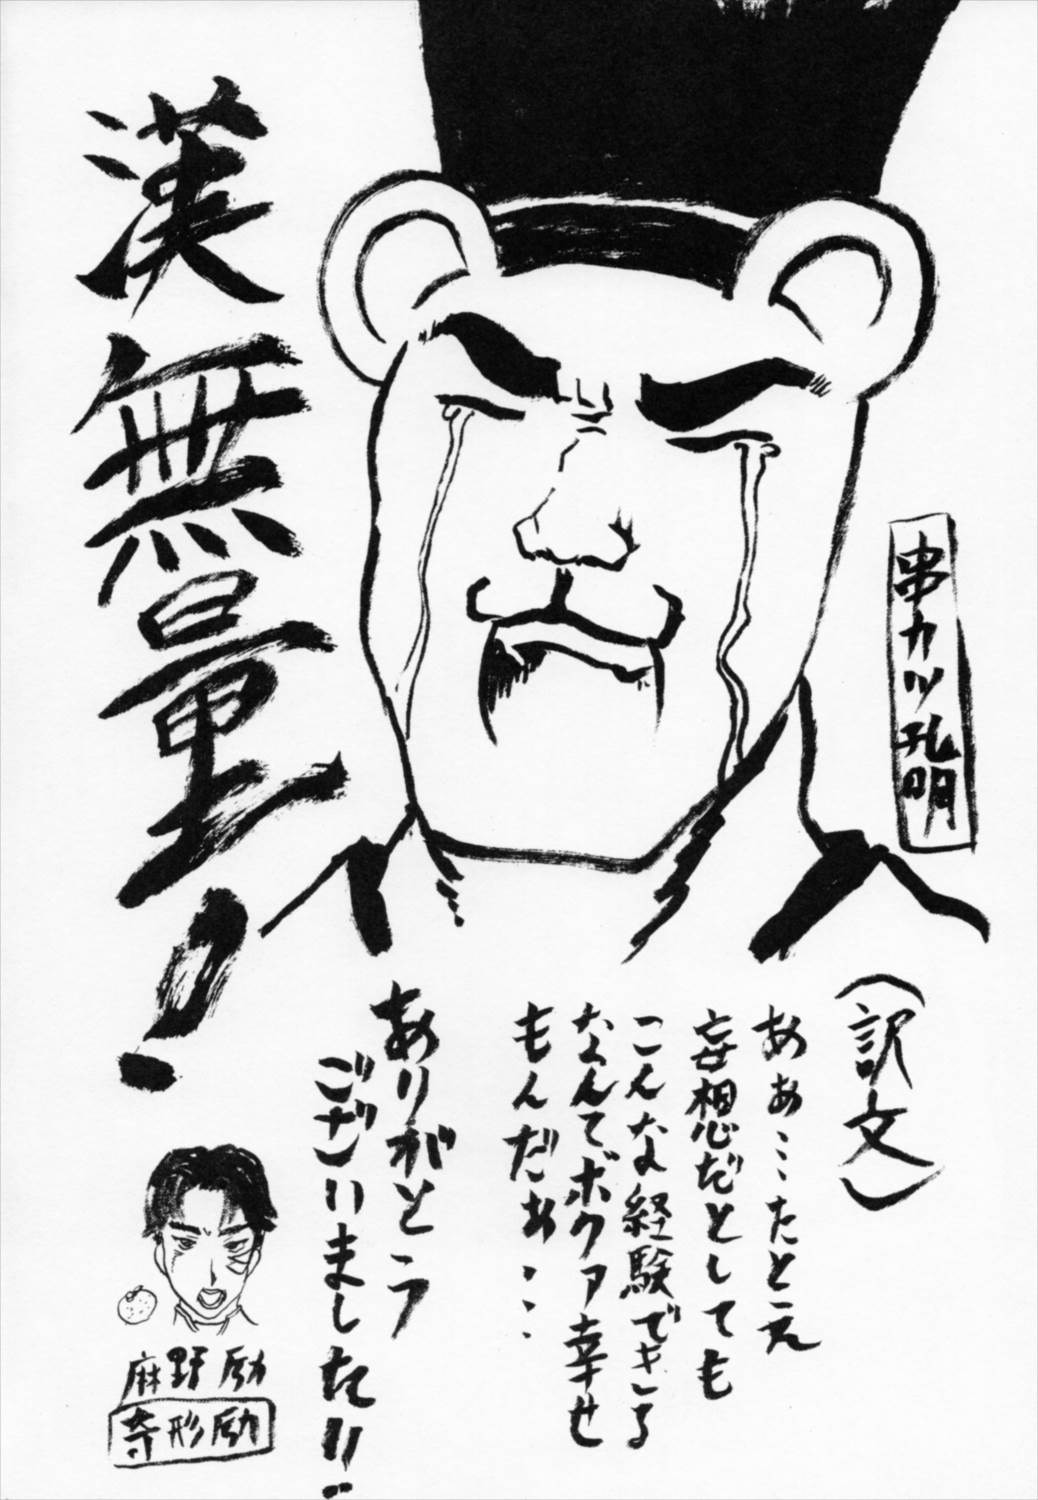 漢無量!
串カツ孔明
(訳文)
ああ…たとえ
妄想だとしても
こんな経験できる
なんてボクァ幸せ
もんだぁ…
ありがとう
ございました!!
麻野励
寺形励